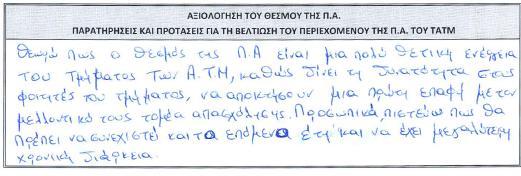 ΑΞΙΟΛΟΓΗΣΗ ΤΟΥ ΘΕΣΜΟΥ ΤΗΣ Π.Α.
ΠΑΡΑΤΗΡΗΣΕΙΣ ΚΑΙ ΠΡΟΤΑΣΕΙΣ ΓΙΑ ΤΗ ΒΕΛΤΙΩΣΗ ΤΟΥ ΠΕΡΙΕΧΟΜΕΝΟΥ ΤΗΣ Π.Α. ΤΟΥ ΤΑΤΜ
Θεωρώ πως ο θεσμός της Π.Α είναι μια πολύ θετική ενέργεια
του Τμήματος των Α.Τ.Μ, καθώς δίνει τη δυνατότητα στους
φοιτητές του τμήματος, να αποκτήσουν μια πρώτη επαφή με τον
μελλοντικό τους τομέα απασχόλησης. Προσωπικά, πιστεύω πως θα
πρέπει να συνεχιστεί και τα επόμενα έτη και να έχει μεγαλύτερη
χρονική διάρκεια.